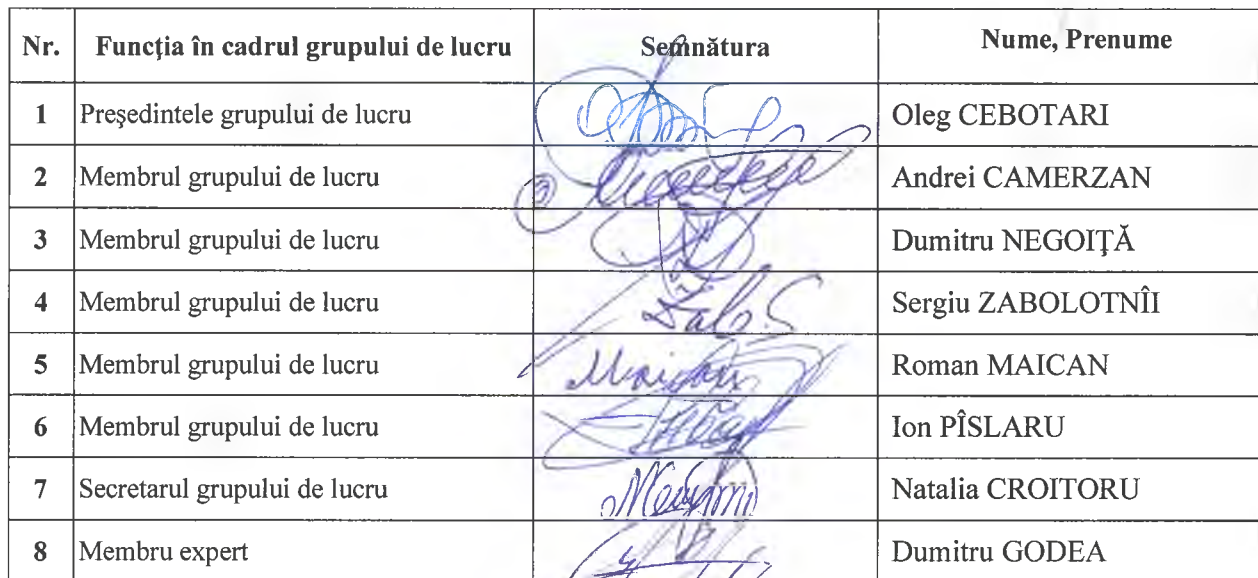 Nr. Funcția în cadrul grupului de lucru Semnătura Nume, Prenume
1 Președintele grupului de lucru Oleg CEBOTARI
2 Membrul grupului de lucru Andrei CAMERZAN
3 Membrul grupului de lucru Dumitru NEGOIȚĂ
4 Membrul grupului de lucru Sergiu ZABOLOTNÎI
5 Membrul grupului de lucru Roman MAICAN
6 Membrul grupului de lucru Ion PÎSLARU
7 Secretarul grupului de lucru Natalia CROITORU
8 Membru expert Dumitru GODEA